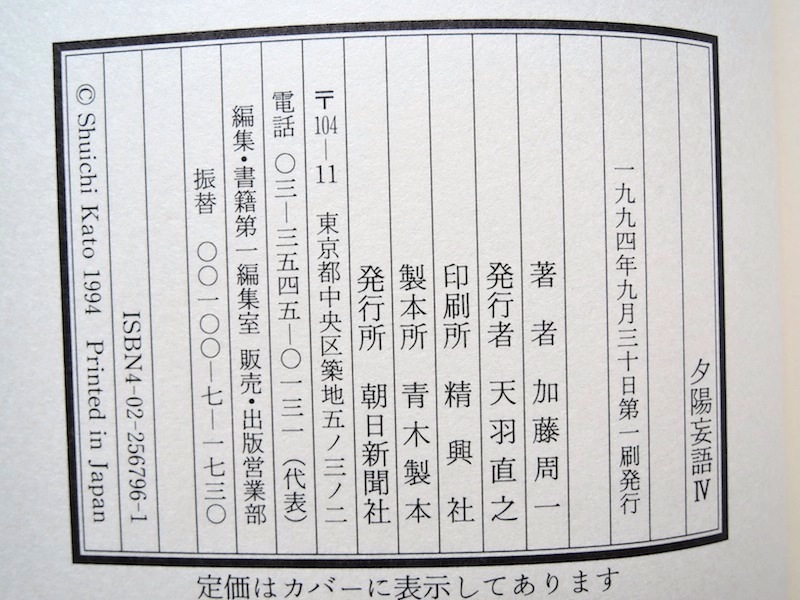 夕陽妄語Ⅳ
一九九四年九月三十日第一刷発行
著者 加藤周一
発行者 天羽直之
印刷所 精興社
製本所 青木製本
発行所 朝日新聞社
〒104-11 東京都中央区築地五ノ三ノ二
電話 〇三-三五四五-〇一三一（代表）
編集・書籍第一編集室 販売・出版営業部
振替 〇〇一〇〇-七-一七三〇
ISBN4-02-256796-1
© Shuichi Kato 1994 Printed in Japan
定価はカバーに表示してあります